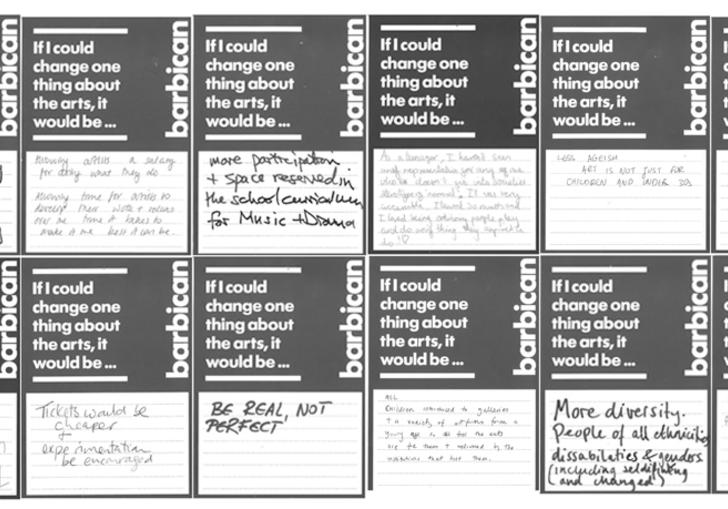 barbican
If I could
change one
thing about
the arts, it
would be ...
barbican
Allowing artists a salary
for doing what they do
Allowing time for artists to
develop their work + ideas
over the time it takes to
make it the best it can be.
If I could
change one
thing about
the arts, it
would be ...
barbican
more participation
+ space reserved in
the school curriculum
for Music + Drama
If I could
change one
thing about
the arts, it
would be ...
barbican
As a teenager, I haven't seen
representation for any of us
who doesn't
normal". It was very
I loved so much and
I loved seeing ordinary people play
and do anything they
do!
If I could
change one
thing about
the arts, it
would be ...
barbican
LESS AGEISM
ART IS NOT JUST FOR
CHILDREN AND UNDER 30s
barbican
If I could
change one
thing about
the arts, it
would be ...
barbican
Tickets would be
cheaper
+
experimentation
be encouraged
If I could
change one
thing about
the arts, it
would be ...
barbican
BE REAL, NOT
PERFECT
If I could
change one
thing about
the arts, it
would be ...
barbican
ALL
Children introduced to galleries
+ a variety of art forms from a
young age so all feel the arts
are for them + welcomed by the
institutions that host them.
If I could
change one
thing about
the arts, it
would be ...
barbican
More diversity.
People of all ethnicities
dissabilaties & genders
(including
and changed)